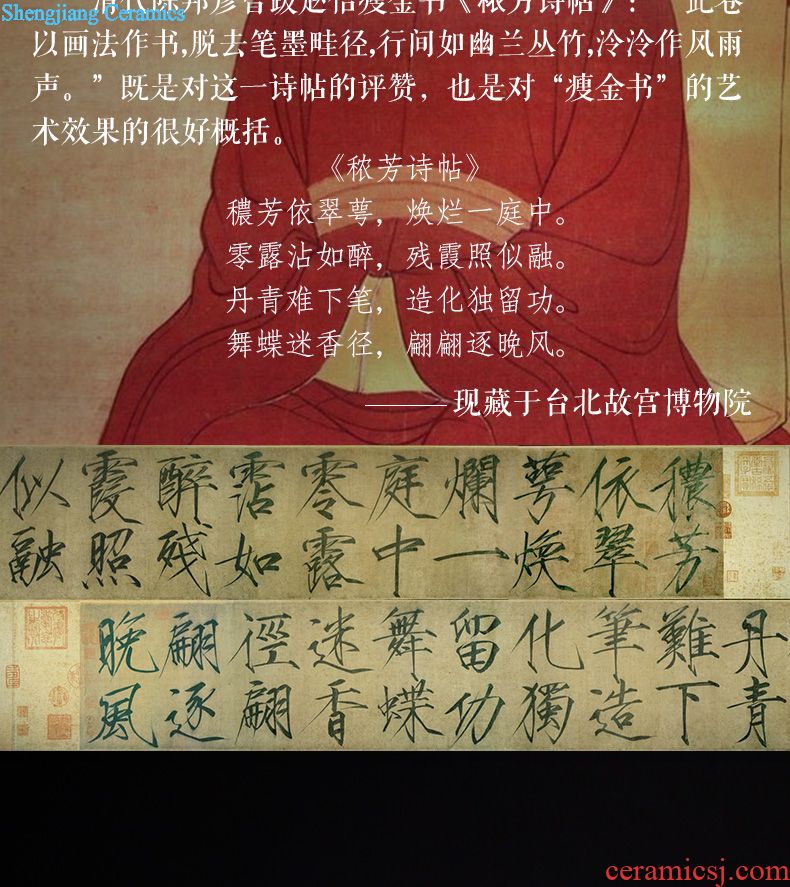 Shengjiang Ceramics
清代陈邦彦曾跋赵佶瘦金书《秾芳诗帖》：“此卷
以画法作书,脱去笔墨畦径,行间如幽兰丛竹,泠泠作风雨
声。”既是对这一诗帖的评赞，也是对“瘦金书”的艺
术效果的很好概括。
《秾芳诗帖》
穠芳依翠萼，焕烂一庭中。
零露沾如醉，残霞照似融。
丹青难下笔，造化独留功。
舞蝶迷香径，翩翩逐晚风。
———现藏于台北故宫博物院
穠芳
依翠
萼煥
爛一
庭中
零露
霑如
醉殘
霞照
似融
丹青
難下
筆造
化獨
留功
舞蝶
迷香
徑翩
翩逐
晚風
ceramicsj.com